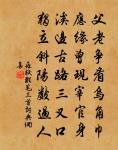 父老爭看烏角巾
應緣曾現宰官身
溪邊古路三叉口
獨立斜陽數過人
縱筆三首